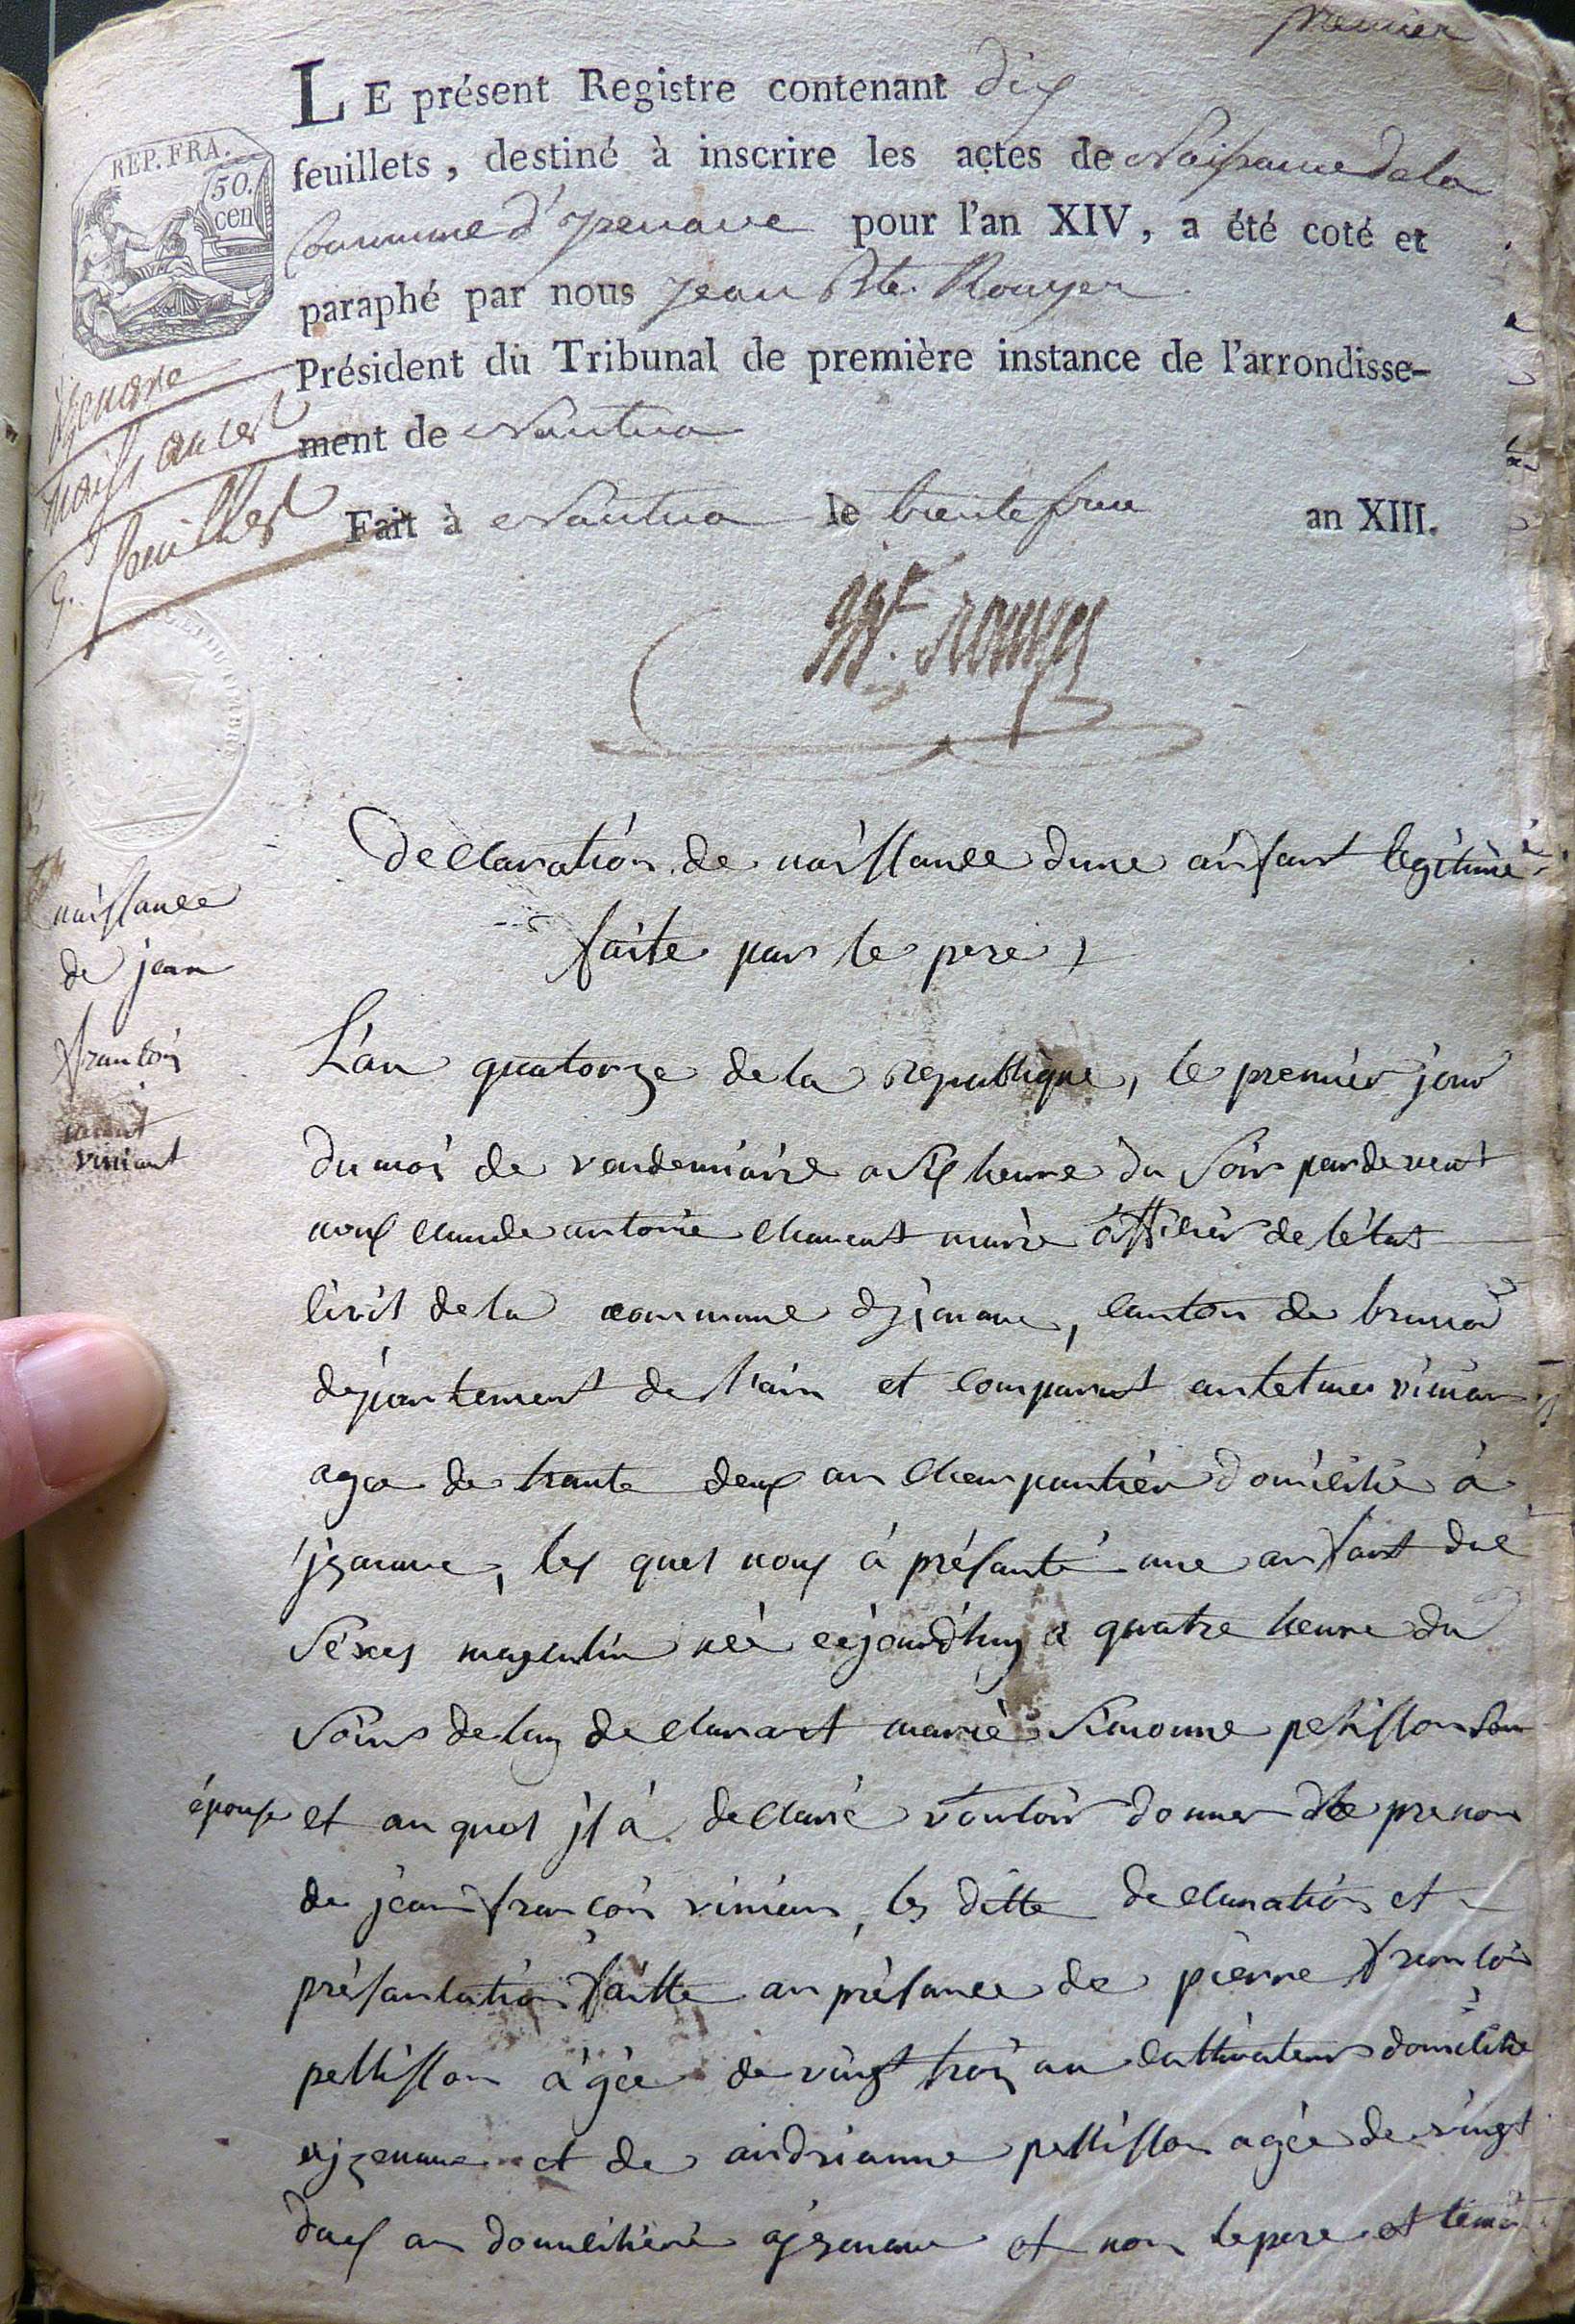 premier
LE présent Registre contenant dix
feuillets, destiné à inscrire les actes de Naissance de la
Commune d'yzenave pour l'an XIV, a été coté et
paraphé par nous Jean Bte. Rouyer
Président du Tribunal de première instance de l'arrondisse-
ment de Nantua
Fait à Nantua le trente an XIII.
REP. FRA.
50.
cen
naissances
feuillets
Rouyer
declaration de naissance dune anfant legitime
faite par le pere
naissance
de jean
françois
viviant
L'an quatorze de la republique, le premier jour
du moi de vendemiaire a six heure du soir pardevent
nous claude antoine chavent maire officier de l'état
civil de la commune dizenave, canton de brenod
département de l'ain et comparut vivian
agée de trante deux an charpantier domicilié à
izenave, les quel nous à présanté une anfant du
séxes masculin néé cejourd'huy à quatre heure du
soir de luy declarant marie simonne pellisson son
épouse et au quel il à declaré vouloir donner le prenom
de jean françois vivian, les ditte declaration et
présantation faitte an présance de pierre françois
pellisson àgée de vingt trois an cultivateur domicilié
a izenave et de andrianne pellisson agée de vingt
deux an domiciliéé a izenave et non le pere et témoi